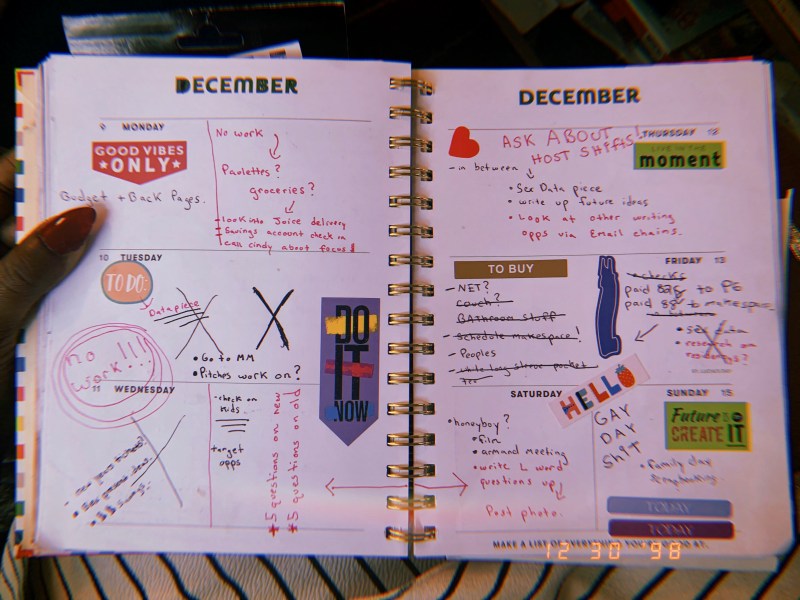 DECEMBER
9 MONDAY
GOOD VIBES
ONLY
Budget + Back Pages.
No work
Paolettes?
groceries?
look into Joice delivery
Savings account check in
call cindy about focus!
10 TUESDAY
TO DO:
Data piece
• Go to MM
• Pitches work on?
no
work!!!
DO
IT
NOW
11 WEDNESDAY
-check on
kids.
target
opps
*5 questions on new
*5 questions on old
DECEMBER
THURSDAY 12
ASK ABOUT
HOST SHIFTS!
LIVE IN THE
moment
- in between
• See Data piece
• write up future ideas
• Look at other writing
opps via Email chains.
TO BUY
- NET?
couch?
- BAthroom stuff
- Schedule makespace!
- Peoples
- white long sleeve pocket
tee
FRIDAY 13
checks
paid 828 to PG
paid 88 to makespace
• See data
• research on
HELLO
SATURDAY
• honeyboy?
• film
• armand meeting
• write L word
questions up
Post photo.
SUNDAY 15
GAY
DAY
Sh*t
Future
CREATE IT
• family day
scrapbooking.
TODAY
TODAY
MAKE A LIST OF EVERYTHING YOU'RE GOOD AT.
12 30 98